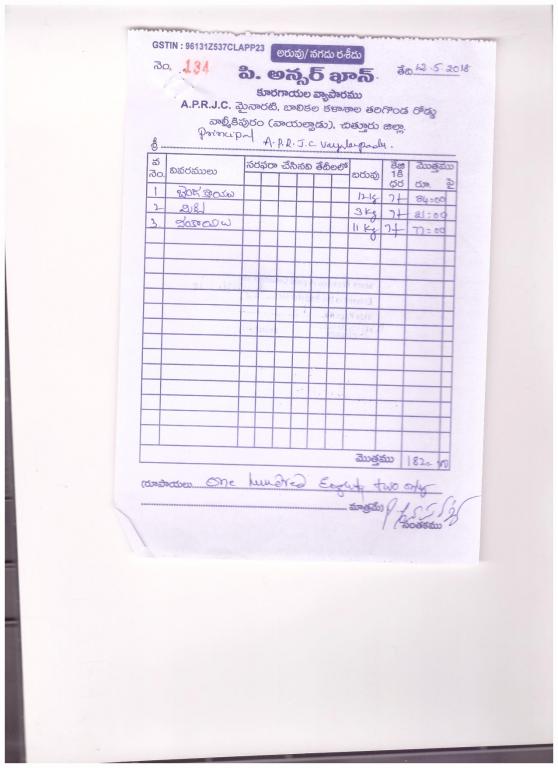 GSTIN : 96131Z537CLAPP23
అరువు/ నగదు రశీదు
నెం. 134
తేది 12-5-2018
పి. అన్సర్ ఖాన్
కూరగాయల వ్యాపారము
A.P.R.J.C. మైనారటి, బాలికల కళాశాల తరిగొండ రోడ్డు
వాల్మీకిపురం (వాయల్పాడు), చిత్తూరు జిల్లా
Principal
శ్రీ A.P.R.J.C
వ నెం. వివరములు సరఫరా చేసినవి తేదీలలో బరువు కేజి 1కి ధర మొత్తము రూ. పై
1 12 kg 7/- 84=00
2 3 kg 7/- 21=00
3 11 kg 7/- 77=00
మొత్తము 182=00
(రూపాయలు One hundred Eighty two only
మాత్రమే)
సంతకము